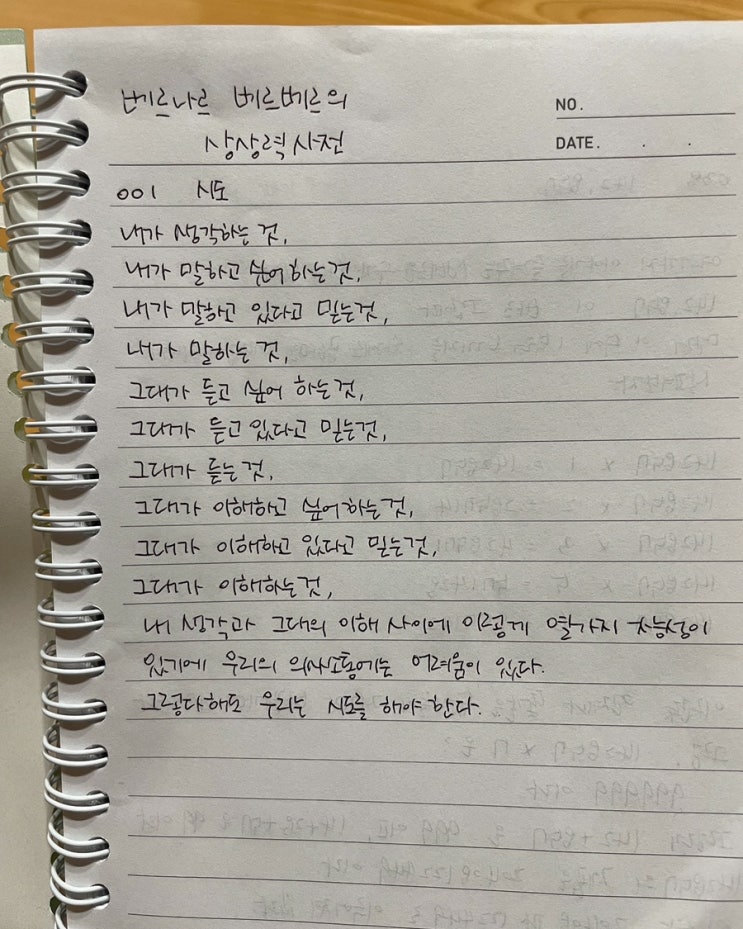 베르나르 베르베르의
상상력 사전
NO.
DATE. . .
001 시도
내가 생각하는 것,
내가 말하고 싶어 하는 것,
내가 말하고 있다고 믿는 것,
내가 말하는 것,
그대가 듣고 싶어 하는 것,
그대가 듣고 있다고 믿는 것,
그대가 듣는 것,
그대가 이해하고 싶어 하는 것,
그대가 이해하고 있다고 믿는 것,
그대가 이해하는 것,
내 생각과 그대의 이해 사이에 이렇게 열가지 가능성이
있기에 우리의 의사소통에는 어려움이 있다.
그렇다해도 우리는 시도를 해야 한다.